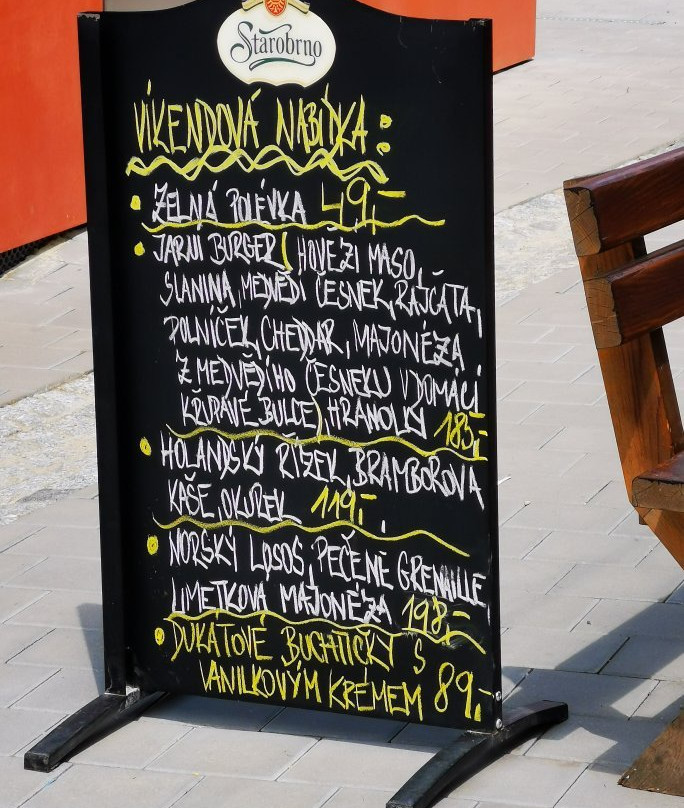 Starobrno
VÍKENDOVÁ NABÍDKA:
• ZELNÁ POLÉVKA 49,-
• JARNÍ BURGER (HOVĚZÍ MASO,
SLANINA, MEDVĚDÍ ČESNEK, RAJČATA,
POLNÍČEK, CHEDDAR, MAJONÉZA
Z MEDVĚDÍHO ČESNEKU V DOMÁCÍ
KŘUPAVÉ BULCE), HRANOLKY 185,-
• HOLANDSKÝ ŘÍZEK, BRAMBOROVÁ
KAŠE, OKUREK 119,-
• NORSKÝ LOSOS, PEČENÉ GRENAILLE
LIMETKOVÁ MAJONÉZA 198,-
• DUKÁTOVÉ BUCHTIČKY S
VANILKOVÝM KRÉMEM 89,-